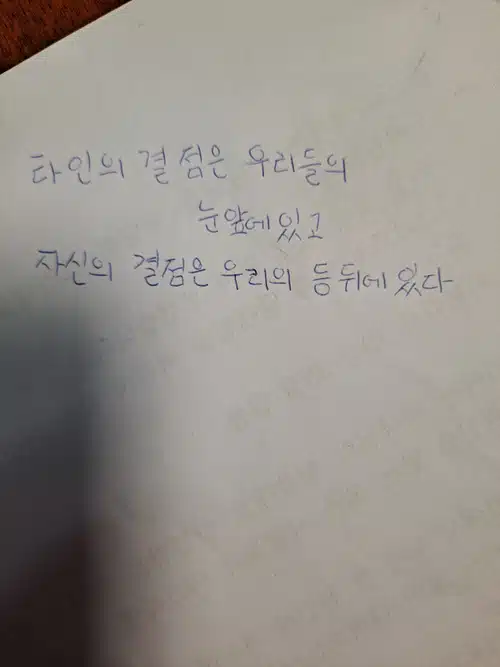 타인의 결점은 우리들의
눈앞에있고
자신의 결점은 우리의 등뒤에있다